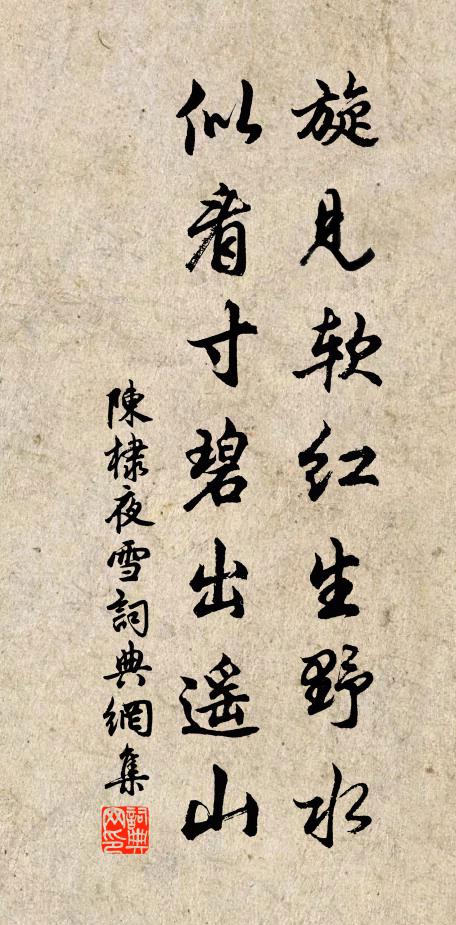 旋見软红生野水
似看寸碧出遥山
陳棣夜雪詞典網集
詞典网印